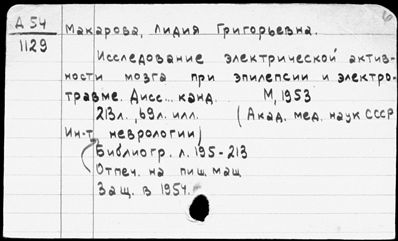 Д 54
1129
Макарова, Лидия Григорьевна.
Исследование электрической актив-
ности мозга при эпилепсии и электро-
травме. Дисс... канд. М, 1953
213л., 69л. илл. (Акад. мед. наук СССР
Ин-т неврологии)
Библиогр. л. 195-213
Отпеч. на пиш. маш
Защ. в 1954.